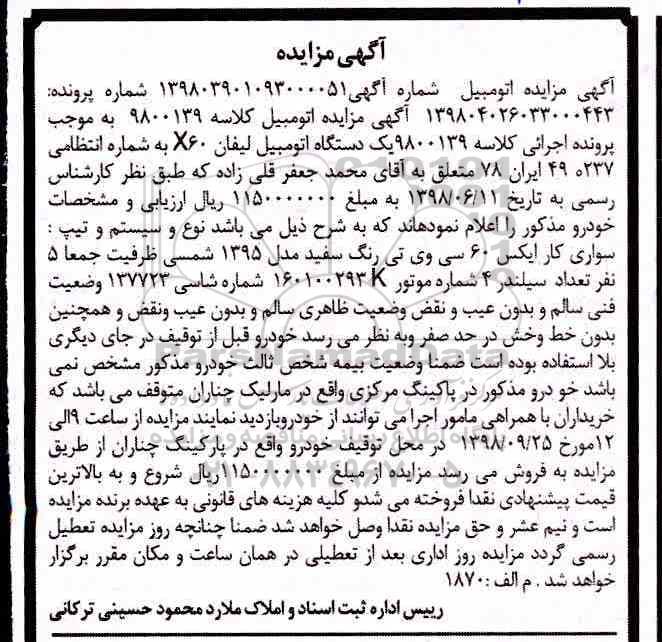 آگهی مزایده
آگهی مزایده اتومبیل شماره آگهی۱۳۹۸۰۳۹۰۱۰۹۳۰۰۰۰۵۱ شماره پرونده:
۱۳۹۸۰۴۰۲۶۰۳۳۰۰۰۴۴۳ آگهی مزایده اتومبیل کلاسه ۹۸۰۰۱۳۹ به موجب
پرونده اجرائی کلاسه ۹۸۰۰۱۳۹یک دستگاه اتومبیل لیفان X۶۰ به شماره انتظامی
۲۳۷ه ۴۹ ایران ۷۸ متعلق به آقای محمد جعفر قلی زاده که طبق نظر کارشناس
رسمی به تاریخ ۱۳۹۸/۰۶/۱۱ به مبلغ ۱۱۵۰۰۰۰۰۰۰ ریال ارزیابی و مشخصات
خودرو مذکور را اعلام نمودهاند که به شرح ذیل می باشد نوع و سیستم و تیپ :
سواری کار ایکس ۶۰ سی وی تی رنگ سفید مدل ۱۳۹۵ شمسی ظرفیت جمعا ۵
نفر تعداد سیلندر ۴ شماره موتور K ۱۶۰۱۰۰۲۹۳ شماره شاسی ۱۳۷۷۲۳ وضعیت
فنی سالم و بدون عیب و نقض وضعیت ظاهری سالم و بدون عیب ونقض و همچنین
بدون خط وخش در حد صفر وبه نظر می رسد خودرو قبل از توقیف در جای دیگری
بلا استفاده بوده است ضمنا وضعیت بیمه شخص ثالث خودرو مذکور مشخص نمی
باشد خو درو مذکور در پاکینگ مرکزی واقع در مارلیک چناران متوقف می باشد که
خریداران با همراهی مامور اجرا می توانند از خودروبازدید نمایند مزایده از ساعت ۹الی
۱۲مورخ ۱۳۹۸/۰۹/۲۵ در محل توقیف خودرو واقع در پارکینگ چناران از طریق
مزایده به فروش می رسد مزایده از مبلغ ۱۱۵۰۰۰۰۰۰۰ریال شروع و به بالاترین
قیمت پیشنهادی نقدا فروخته می شدو کلیه هزینه های قانونی به عهده برنده مزایده
است و نیم عشر و حق مزایده نقدا وصل خواهد شد ضمنا چنانچه روز مزایده تعطیل
رسمی گردد مزایده روز اداری بعد از تعطیلی در همان ساعت و مکان مقرر برگزار
خواهد شد . م الف :۱۸۷۰
رییس اداره ثبت اسناد و املاک ملارد محمود حسینی ترکانی
ParsNamadData
۰۲۱-۸۸۳۴۹۶۷۰-۵